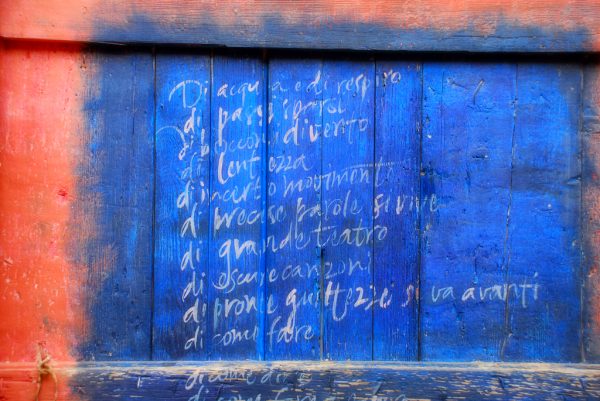 Di acqua e di respiro
di passi sparsi
di bocconi di vento
di lentezza
di incerto movimento
di precise parole si vive
di grande teatro
di oscure canzoni
di pronte guittezze si va avanti
di come fare
di come dire
di come fare